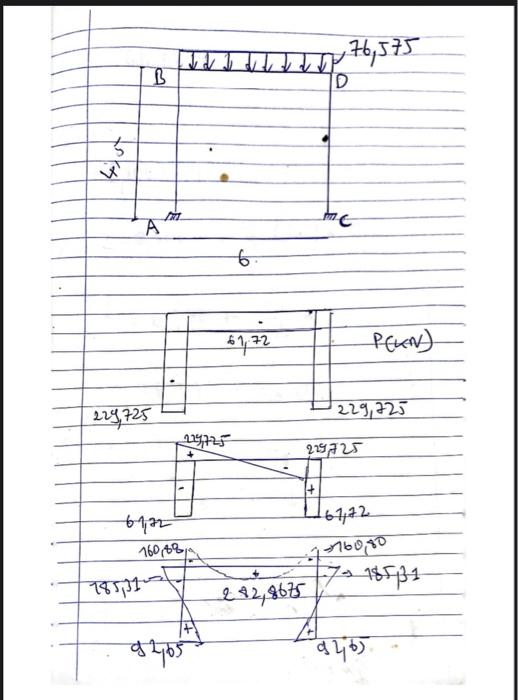 76,575
B
D
4,5
A
C
6.
61,72
P(kN)
229,725
229,725
229,725
229,725
61,72
61,72
160,80
185,31
185,31
282,8675
92,65
92,65